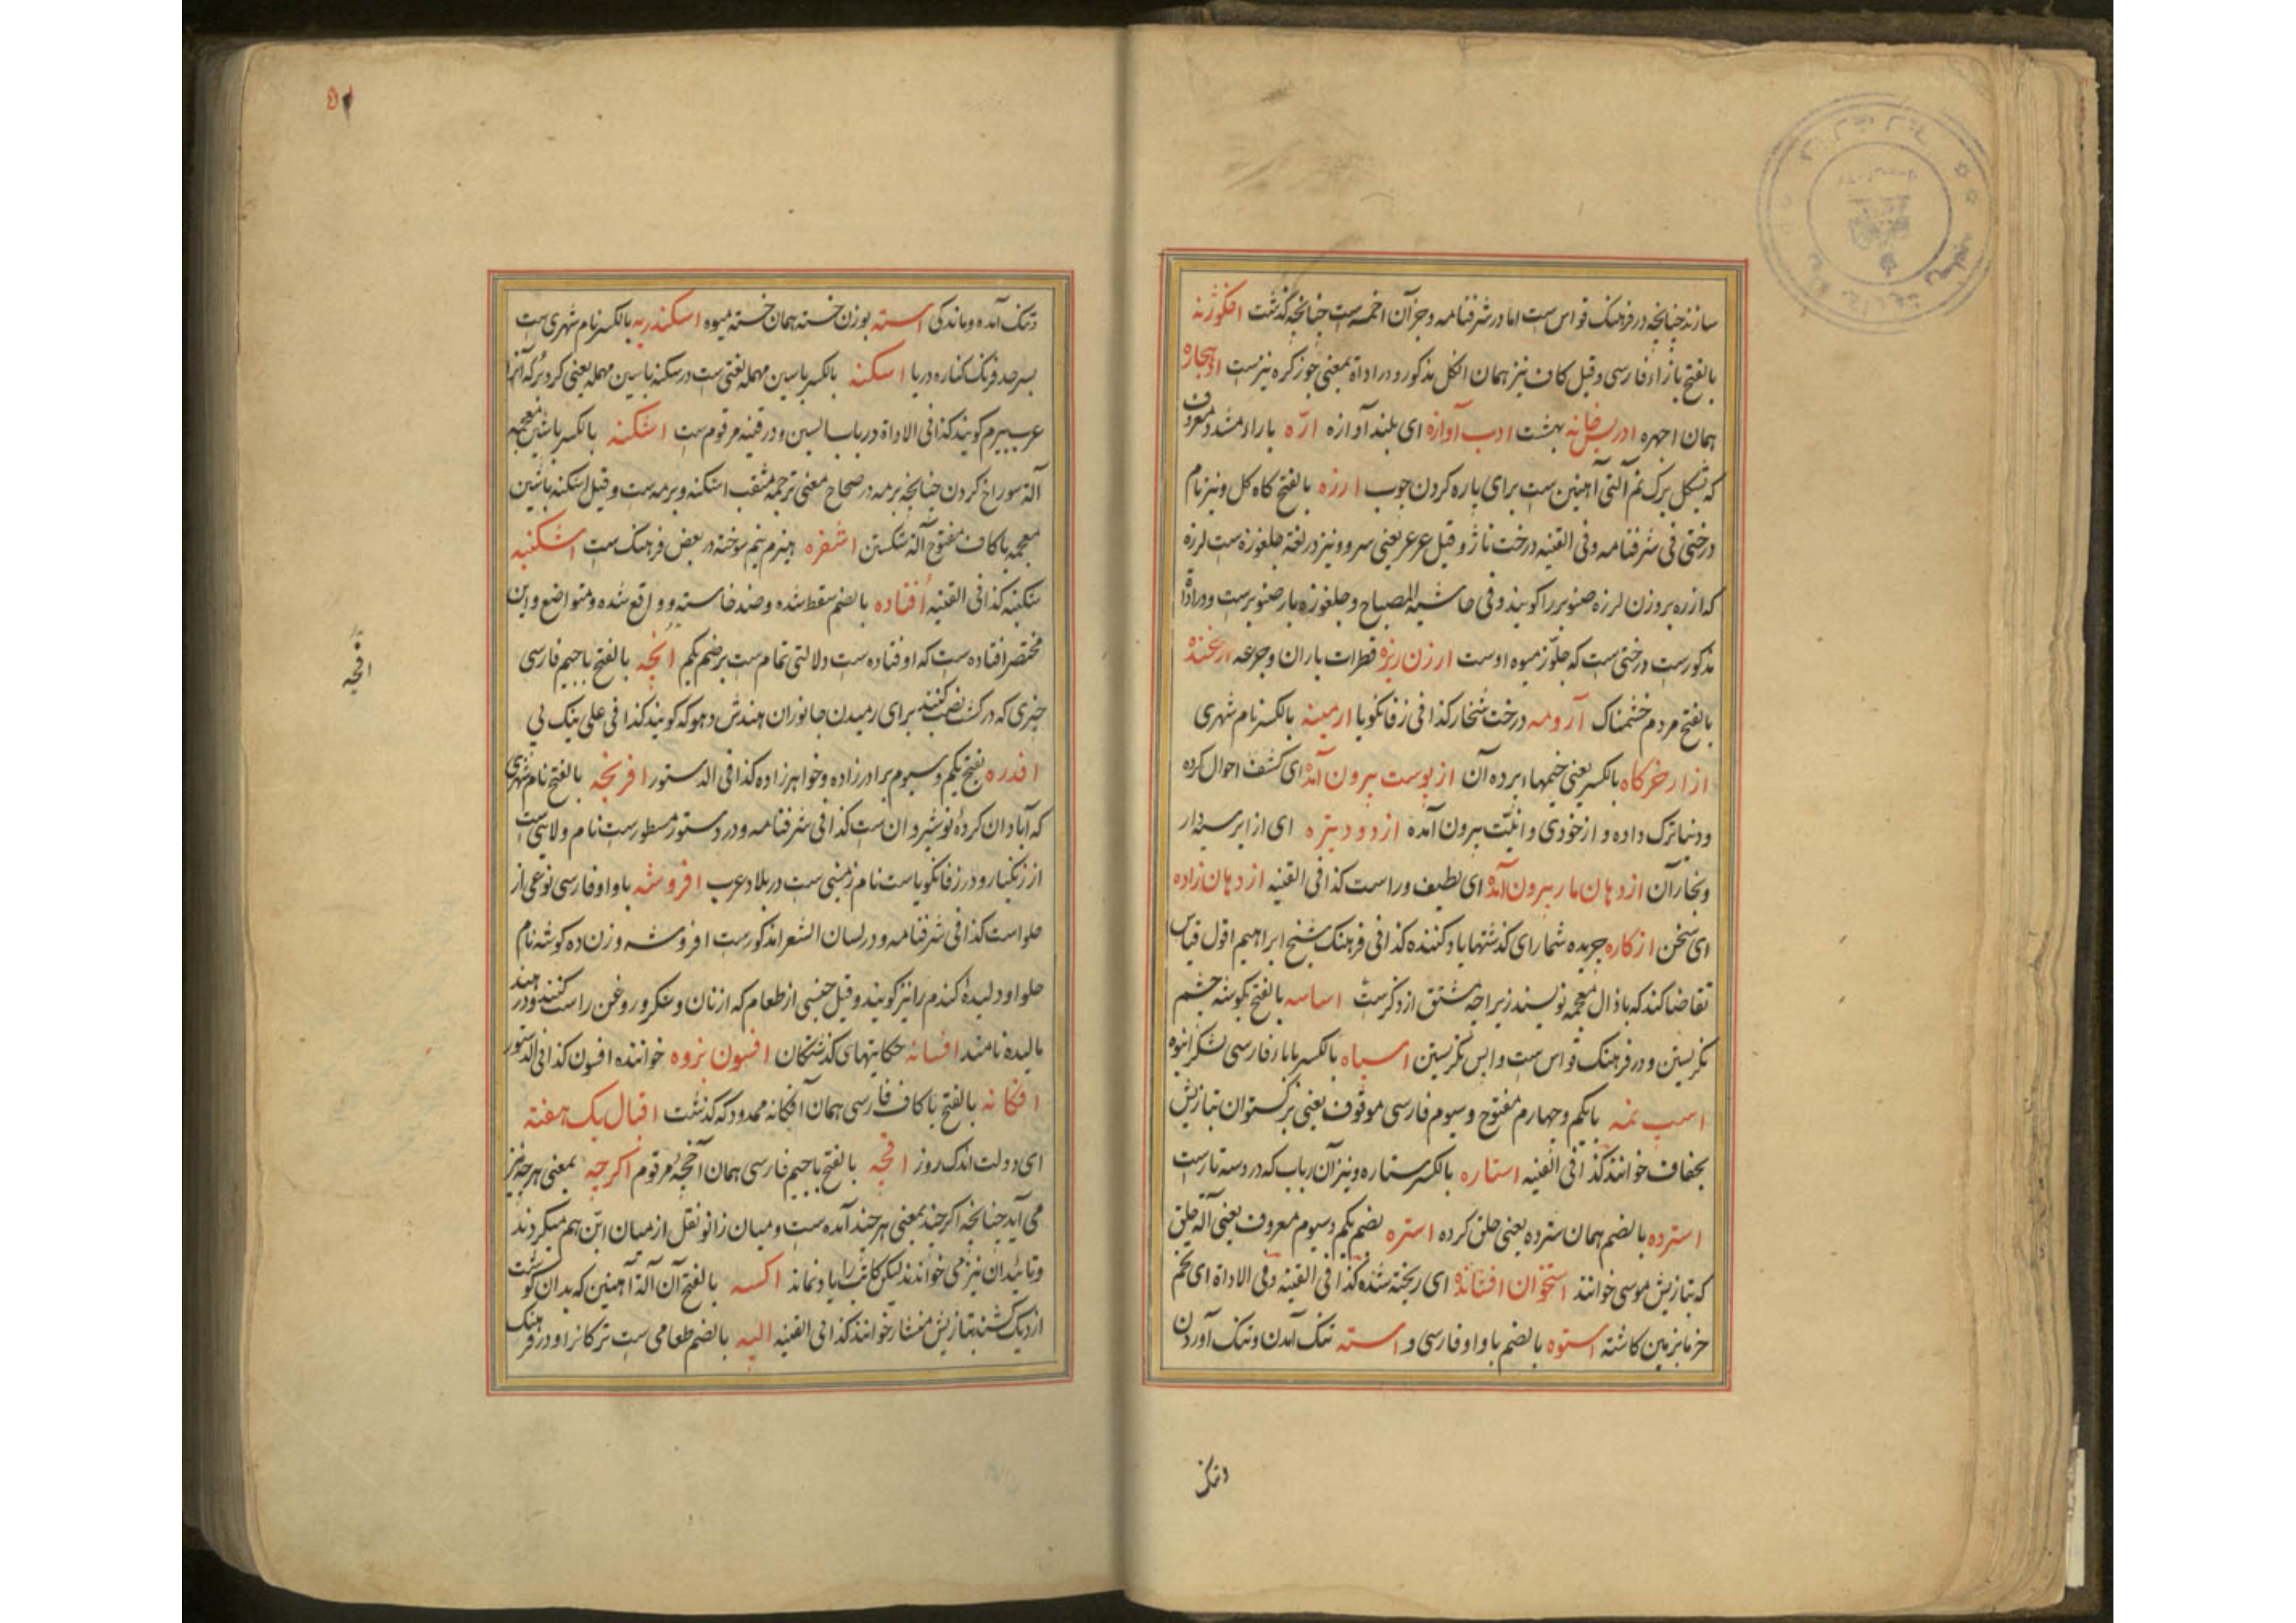 سازند چنانچه در فرهنک قواس ست اما در شرفنامه و جز آن اخمسه ست چنانچه گذشت
بالفتح با زاء فارسی و قیل کاف نیز همان انکل مذکور و در اداة بمعنی جوز کره نیزست
همان اجهره ادریس خانه بهشت ادب آوازه ای بلند آوازه ارّه با راء مشدد معروف
که بشکل برک نم آلتی آهنین ست برای پاره کردن چوب ارزه بالفتح کاه کل و نیز نام
درختی فی شرفنامه و فی القنیه درخت ناژ و قیل عرعر یعنی سرو و نیز در لغة جلغوزه ست لرزه
که ارزه بروزن لرزه صنوبر را کویند و فی حاشیة المصباح و جلغوزه بار صنوبرست و در اداة
مذکورست درختی ست که جلوز میوه اوست ارزن ریزه قطرات باران و جرعه
بالفتح مردم خشمناک آرومه درخت شخار کذا فی زفانکویا ارمینه بالکسر نام شهری
ازار خرکاه بالکسر یعنی خیمها و پرده آن از پوست بیرون آمده ای کشف احوال کرده
و دنیا ترک داده و از خودی و انیّت بیرون آمده از دود تیره ای از ابر سیه دار
و بخار آن از دهان مار بیرون آمده ای لطیف و راست کذا فی القنیه از دهان زاده
ای سخن ازکاره جریده شمار ای کذشتها یاد کننده کذا فی فرهنک شیخ ابراهیم اقول قیاس
تقاضا کند که با ذال معجمه نویسند زیراچه مشتق از ذکرست اساسه بالفتح بکوشه چشم
نکریستن و در فرهنک قواس ست واپس نکریستن اسپاه بالکسر با باء فارسی لشکر انبوه
اسب نمه با یکم و چهارم مفتوح و سیوم فارسی موقوف یعنی برکستوان بتازیش
بجفاف خوانند کذا فی القنیه استاره بالکسر ستاره و نیز آن رباب که در و سه تارست
استرده بالضم همان سترده یعنی حلق کرده استره بضم یکم و سیوم معروف یعنی آلة حلق
که بتازیش موسی خوانند استخوان افشانده ای ریخته شده کذا فی القنیه و فی الاداة ای تخم
خرما بزمین کاشته استوه بالضم با واو فارسی و استه تنک آمدن و تنک آوردن
و تنک
و تنک آمده و ماندکی استه بوزن خسته همان خسته میوه اسکندریه بالکسر نام شهری ست
بسرحد فرنک کناره دریا اسکنه بالکسر با سین مهمله لغتی ست در سکنه با سین مهمله یعنی کردبر که آنرا
عرب بیرم کویند کذا فی الاداة در باب السین و در قنیه مرقوم ست اشکنه بالکسر با شین معجمه
آلة سوراخ کردن چنانچه برمه در صحاح معنی ترجمه مثقب اشکنه و برمه ست و قیل اشکنه با شین
معجمه با کاف مفتوح آلة شکستن اشغره هیزم نیم سوخته در بعض فرهنک ست اشکنبه
شکنبه کذا فی القنیه اُفتاده بالضم سقط شده و ضد خاسته و واقع شده و متواضع و این
مختصر افتاده ست که اوفتاده ست دلالتی تمام ست بر ضم یکم افچه بالفتح با جیم فارسی
چیزی که در کشت نصب کنند برای رمیدن جانوران هندش دهوکه کویند کذا فی علی بیک پی
افدره بفتح یکم و سیوم برادرزاده و خواهرزاده کذا فی الدستور افرنجه بالفتح نام شهری
که آبادان کردهٔ نوشیروان ست کذا فی شرفنامه و در دستور مسطورست نام ولایتی ست
از زنکبار و در زفانکویاست نام زمینی ست در بلاد عرب افروشه با واو فارسی نوعی از
حلواست کذا فی شرفنامه و در لسان الشعرا مذکورست افروشه وزن ده کوشه نام
حلوا و دلیدهٔ کندم را نیز کویند و قیل جنسی از طعام که از نان و شکر و روغن راست کنند و در هند
مالیده نامند افسانه حکایتهای کذشتکان افسون بزوه خواننده افسون کذا فی الدستور
افکانه بالفتح با کاف فارسی همان آفکانه ممدود که گذشت اقبال یک هفته
ای دولت اندک روز اقچه بالفتح با جیم فارسی همان آخچهٔ مرقوم اکرچه بمعنی هرچه نیز
می آید چنانچه اکرچند بمعنی هرچند آمده ست و میان زانو نقل از میان ابّن هم میکردند
و تائیدان نیز می خواندند لیکن کاتب را یاد نماند اکسه بالفتح آن آلة آهنین که بدان کوشت
از دیک کشند بتازیش منشار خوانند کذا فی القنیه البه بالضم طعامی ست ترکانرا و در فرهنک
اقچه